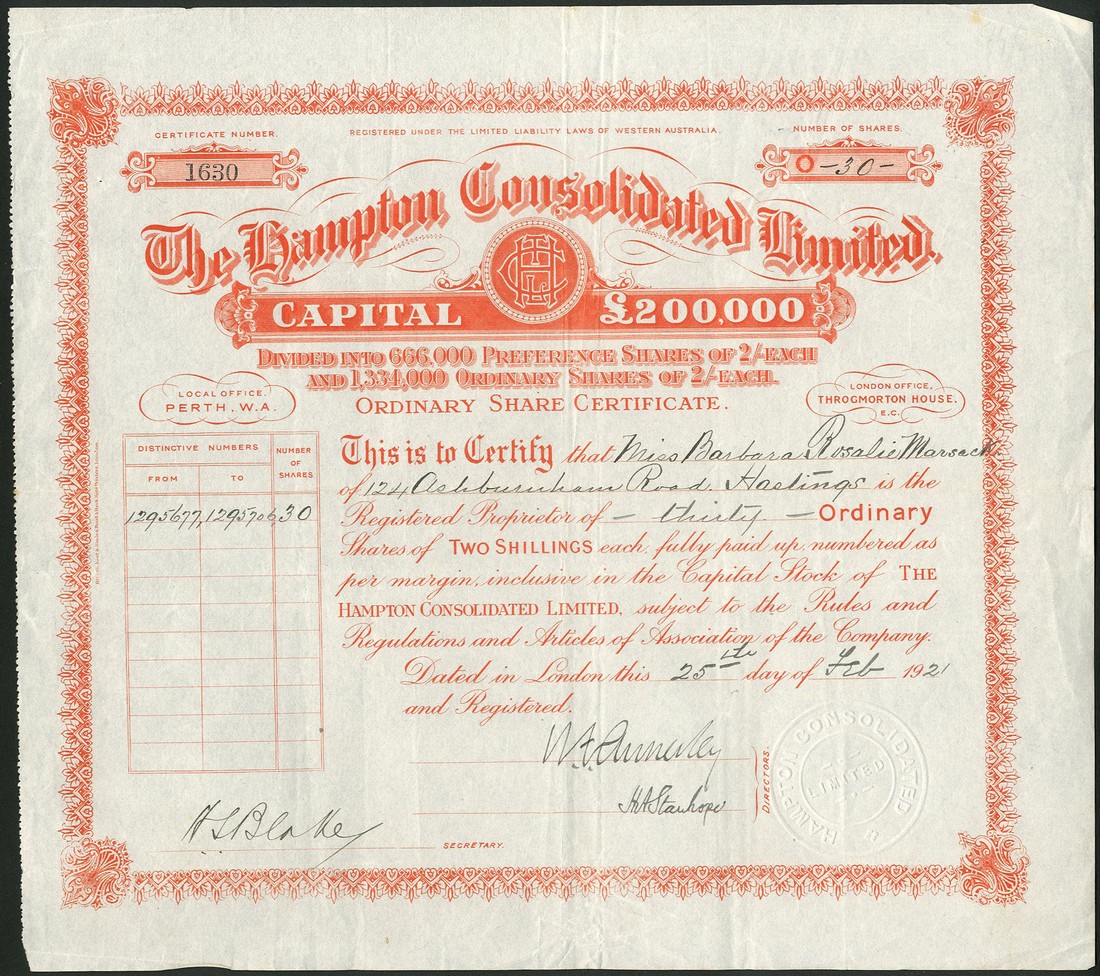 CERTIFICATE NUMBER.
REGISTERED UNDER THE LIMITED LIABILITY LAWS OF WESTERN AUSTRALIA.
NUMBER OF SHARES.
1630
O -30-
The Hampton Consolidated Limited.
CAPITAL £200,000
DIVIDED INTO 666,000 PREFERENCE SHARES OF 2/- EACH
AND 1,334,000 ORDINARY SHARES OF 2/- EACH.
LOCAL OFFICE.
PERTH, W.A.
LONDON OFFICE,
THROGMORTON HOUSE,
E.C.
ORDINARY SHARE CERTIFICATE.
DISTINCTIVE NUMBERS
NUMBER OF SHARES
FROM TO
1295677, 1295706 30
This is to Certify that Miss Barbara Rosalie Marsack
of 124 Ashburnham Road. Hastings is the
Registered Proprietor of - thirty - Ordinary
Shares of TWO SHILLINGS each, fully paid up, numbered as
per margin, inclusive in the Capital Stock of THE
HAMPTON CONSOLIDATED LIMITED, subject to the Rules and
Regulations and Articles of Association of the Company.
Dated in London this 25th day of Feb 1921
and Registered.
H A Stanhope
DIRECTORS.
HAMPTON CONSOLIDATED
LIMITED
H S Blake
SECRETARY.